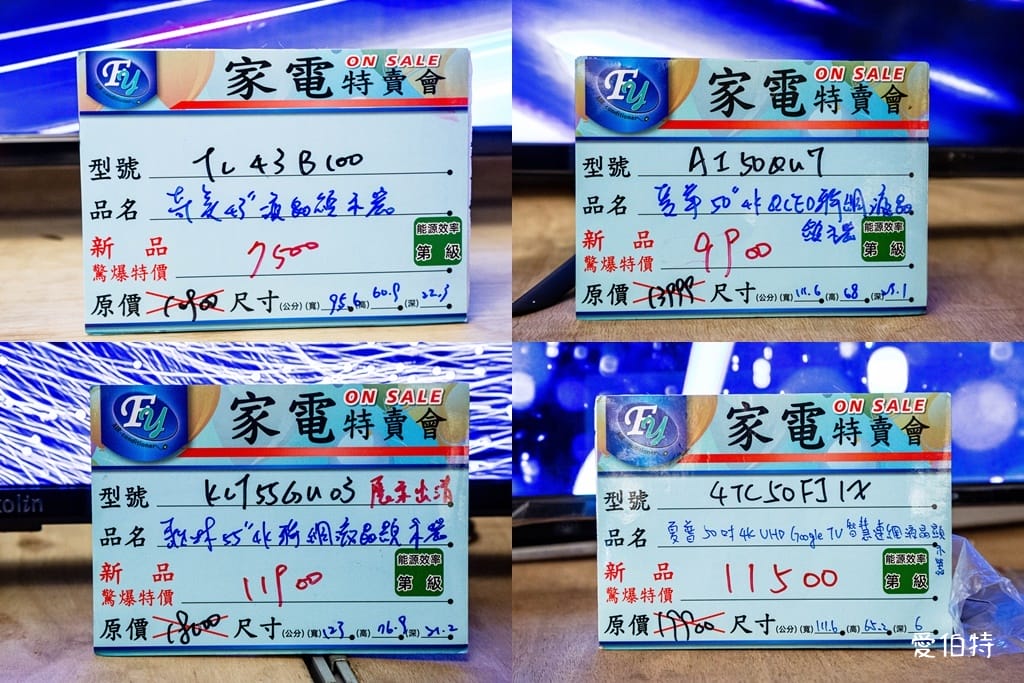 FY
家電特賣會
ON SALE
型號 TL43B100
品名 奇美43"液晶顯示器
新品
驚爆特價 7500
能源效率
第 級
原價 10900 尺寸(公分)(寬)95.6(高)60.9(深)22.3
FY
Air Conditioner
家電特賣會
ON SALE
型號 AI50QU7
品名 50"4K QLED聯網液晶
顯示器
新品
驚爆特價 9900
能源效率
第 級
原價 13999 尺寸(公分)(寬)111.6(高)68(深)
FY
Air Conditioner
家電特賣會
ON SALE
olin
型號 KLT55GU03 展示出清
品名 歌林55"4K聯網液晶顯示器
新品
驚爆特價 11900
能源效率
第 級
原價 18000 尺寸(公分)(寬)123(高)76.9(深)21.2
FY
家電特賣會
ON SALE
型號 4TC50FJ1X
品名 夏普50吋4K UHD Google TV智慧連網液晶顯
示器
新品
驚爆特價 11500
能源效率
第 級
原價 19900 尺寸(公分)(寬)111.6(高)65.2(深)6
愛伯特